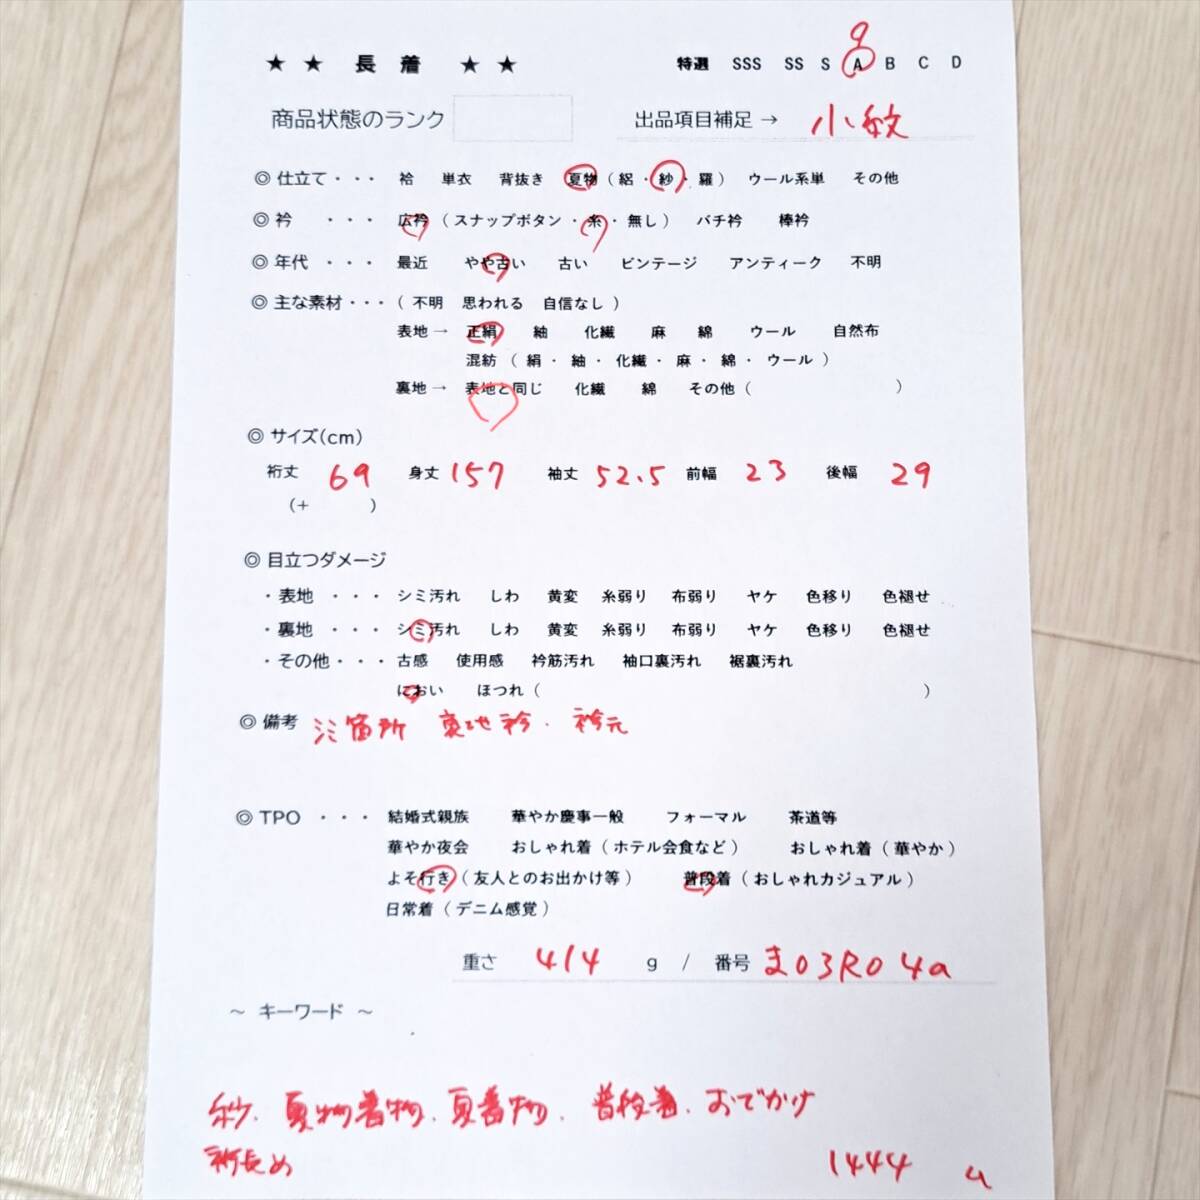 ★ ★ 長 着 ★ ★ 特選 SSS SS S A B C D
商品状態のランク 出品項目補足 → 小紋
◎ 仕立て・・・ 袷 単衣 背抜き 夏物 ( 絽 ・ 紗 ・ 羅 ) ウール系単 その他
◎ 衿 ・・・ 広衿 ( スナップボタン ・ 糸 ・ 無し ) バチ衿 棒衿
◎ 年代 ・・・ 最近 やや古い 古い ビンテージ アンティーク 不明
◎ 主な素材・・・ ( 不明 思われる 自信なし )
表地 → 正絹 紬 化繊 麻 綿 ウール 自然布
混紡 ( 絹・ 紬・ 化繊・ 麻・ 綿・ ウール )
裏地 → 表地と同じ 化繊 綿 その他 ( )
◎ サイズ(cm)
裄丈 69 身丈 157 袖丈 52.5 前幅 23 後幅 29
(+ )
◎ 目立つダメージ
・表地 ・・・ シミ汚れ しわ 黄変 糸弱り 布弱り ヤケ 色移り 色褪せ
・裏地 ・・・ シミ汚れ しわ 黄変 糸弱り 布弱り ヤケ 色移り 色褪せ
・その他・・・ 古感 使用感 衿筋汚れ 袖口裏汚れ 裾裏汚れ
におい ほつれ ( )
◎ 備考 シミ箇所 裏地衿. 衿元
◎ TPO ・・・ 結婚式親族 華やか慶事一般 フォーマル 茶道等
華やか夜会 おしゃれ着 ( ホテル会食など ) おしゃれ着 ( 華やか )
よそ行き ( 友人とのお出かけ等 ) 普段着 ( おしゃれカジュアル )
日常着 ( デニム感覚 )
重さ 414 g / 番号 ま03R04a
～ キーワード ～
紗. 夏物着物. 夏着物. 普段着. おでかけ
裄長め 1444